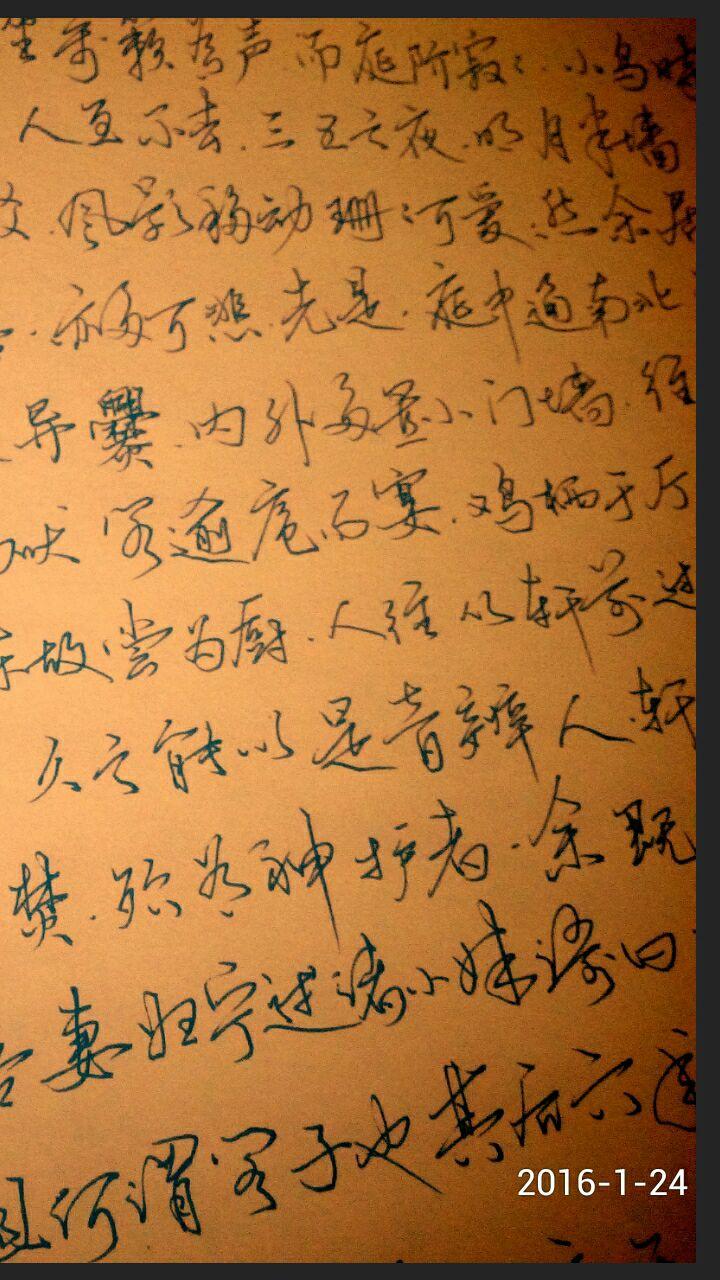 坐万籁有声.而庭阶寂:.小鸟时
人至不去.三五之夜.明月半墙
风影移动珊:可爱.然余居
亦多可悲.先是.庭中通南北
异爨.内外多置小门墙.往
吠客逾庖而宴.鸡栖于厅
故尝为厨.人往从轩前过
久之能以是音辨人.轩
焚.殆有神护者.余既
吾妻归宁述诸小妹语曰
且何谓阁子也其后六
2016-1-24